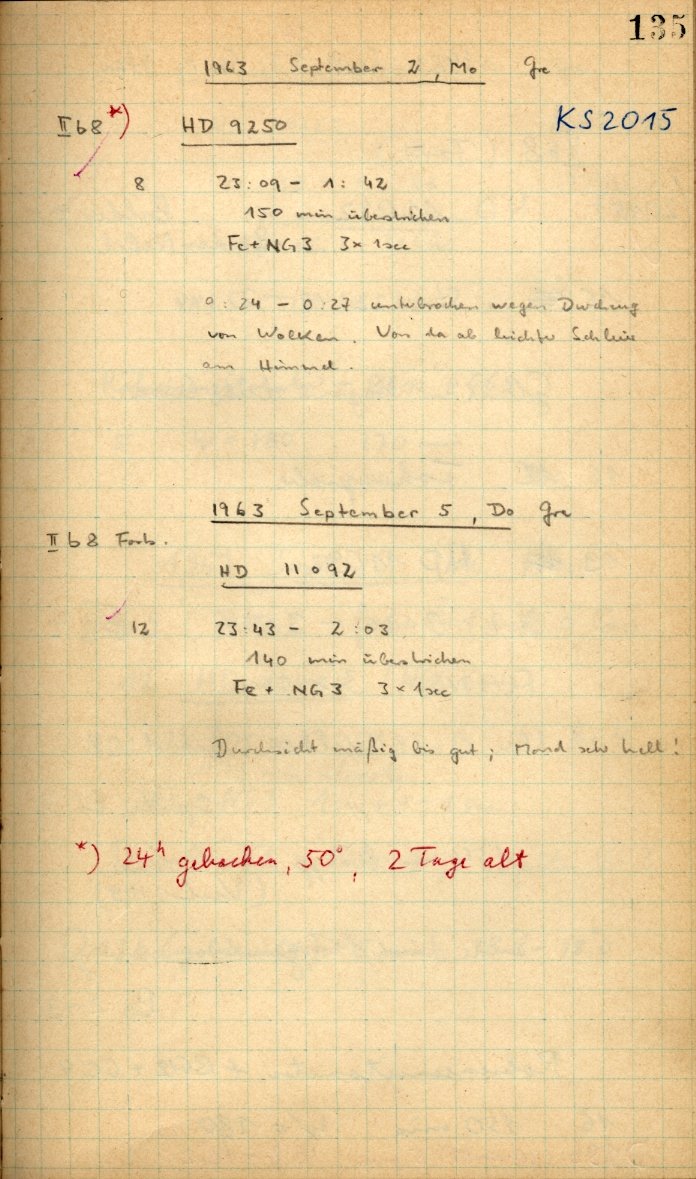 135
1963 September 2, Mo Gre
II b 8 *) HD 9250 KS 2015
8 23:09 - 1:42
150 min überstrichen
Fe + NG 3 3 x 1 sec
0:24 - 0:27 unterbrochen wegen Durchzug
von Wolken. Von da ab leichte Schleier
am Himmel.
1963 September 5, Do Gre
II b 8 Farb.
HD 11092
12 23:43 - 2:03
140 min überstrichen
Fe + NG 3 3 x 1 sec
Durchsicht mäßig bis gut; Mond sehr hell!
*) 24h gebacken, 50°, 2 Tage alt